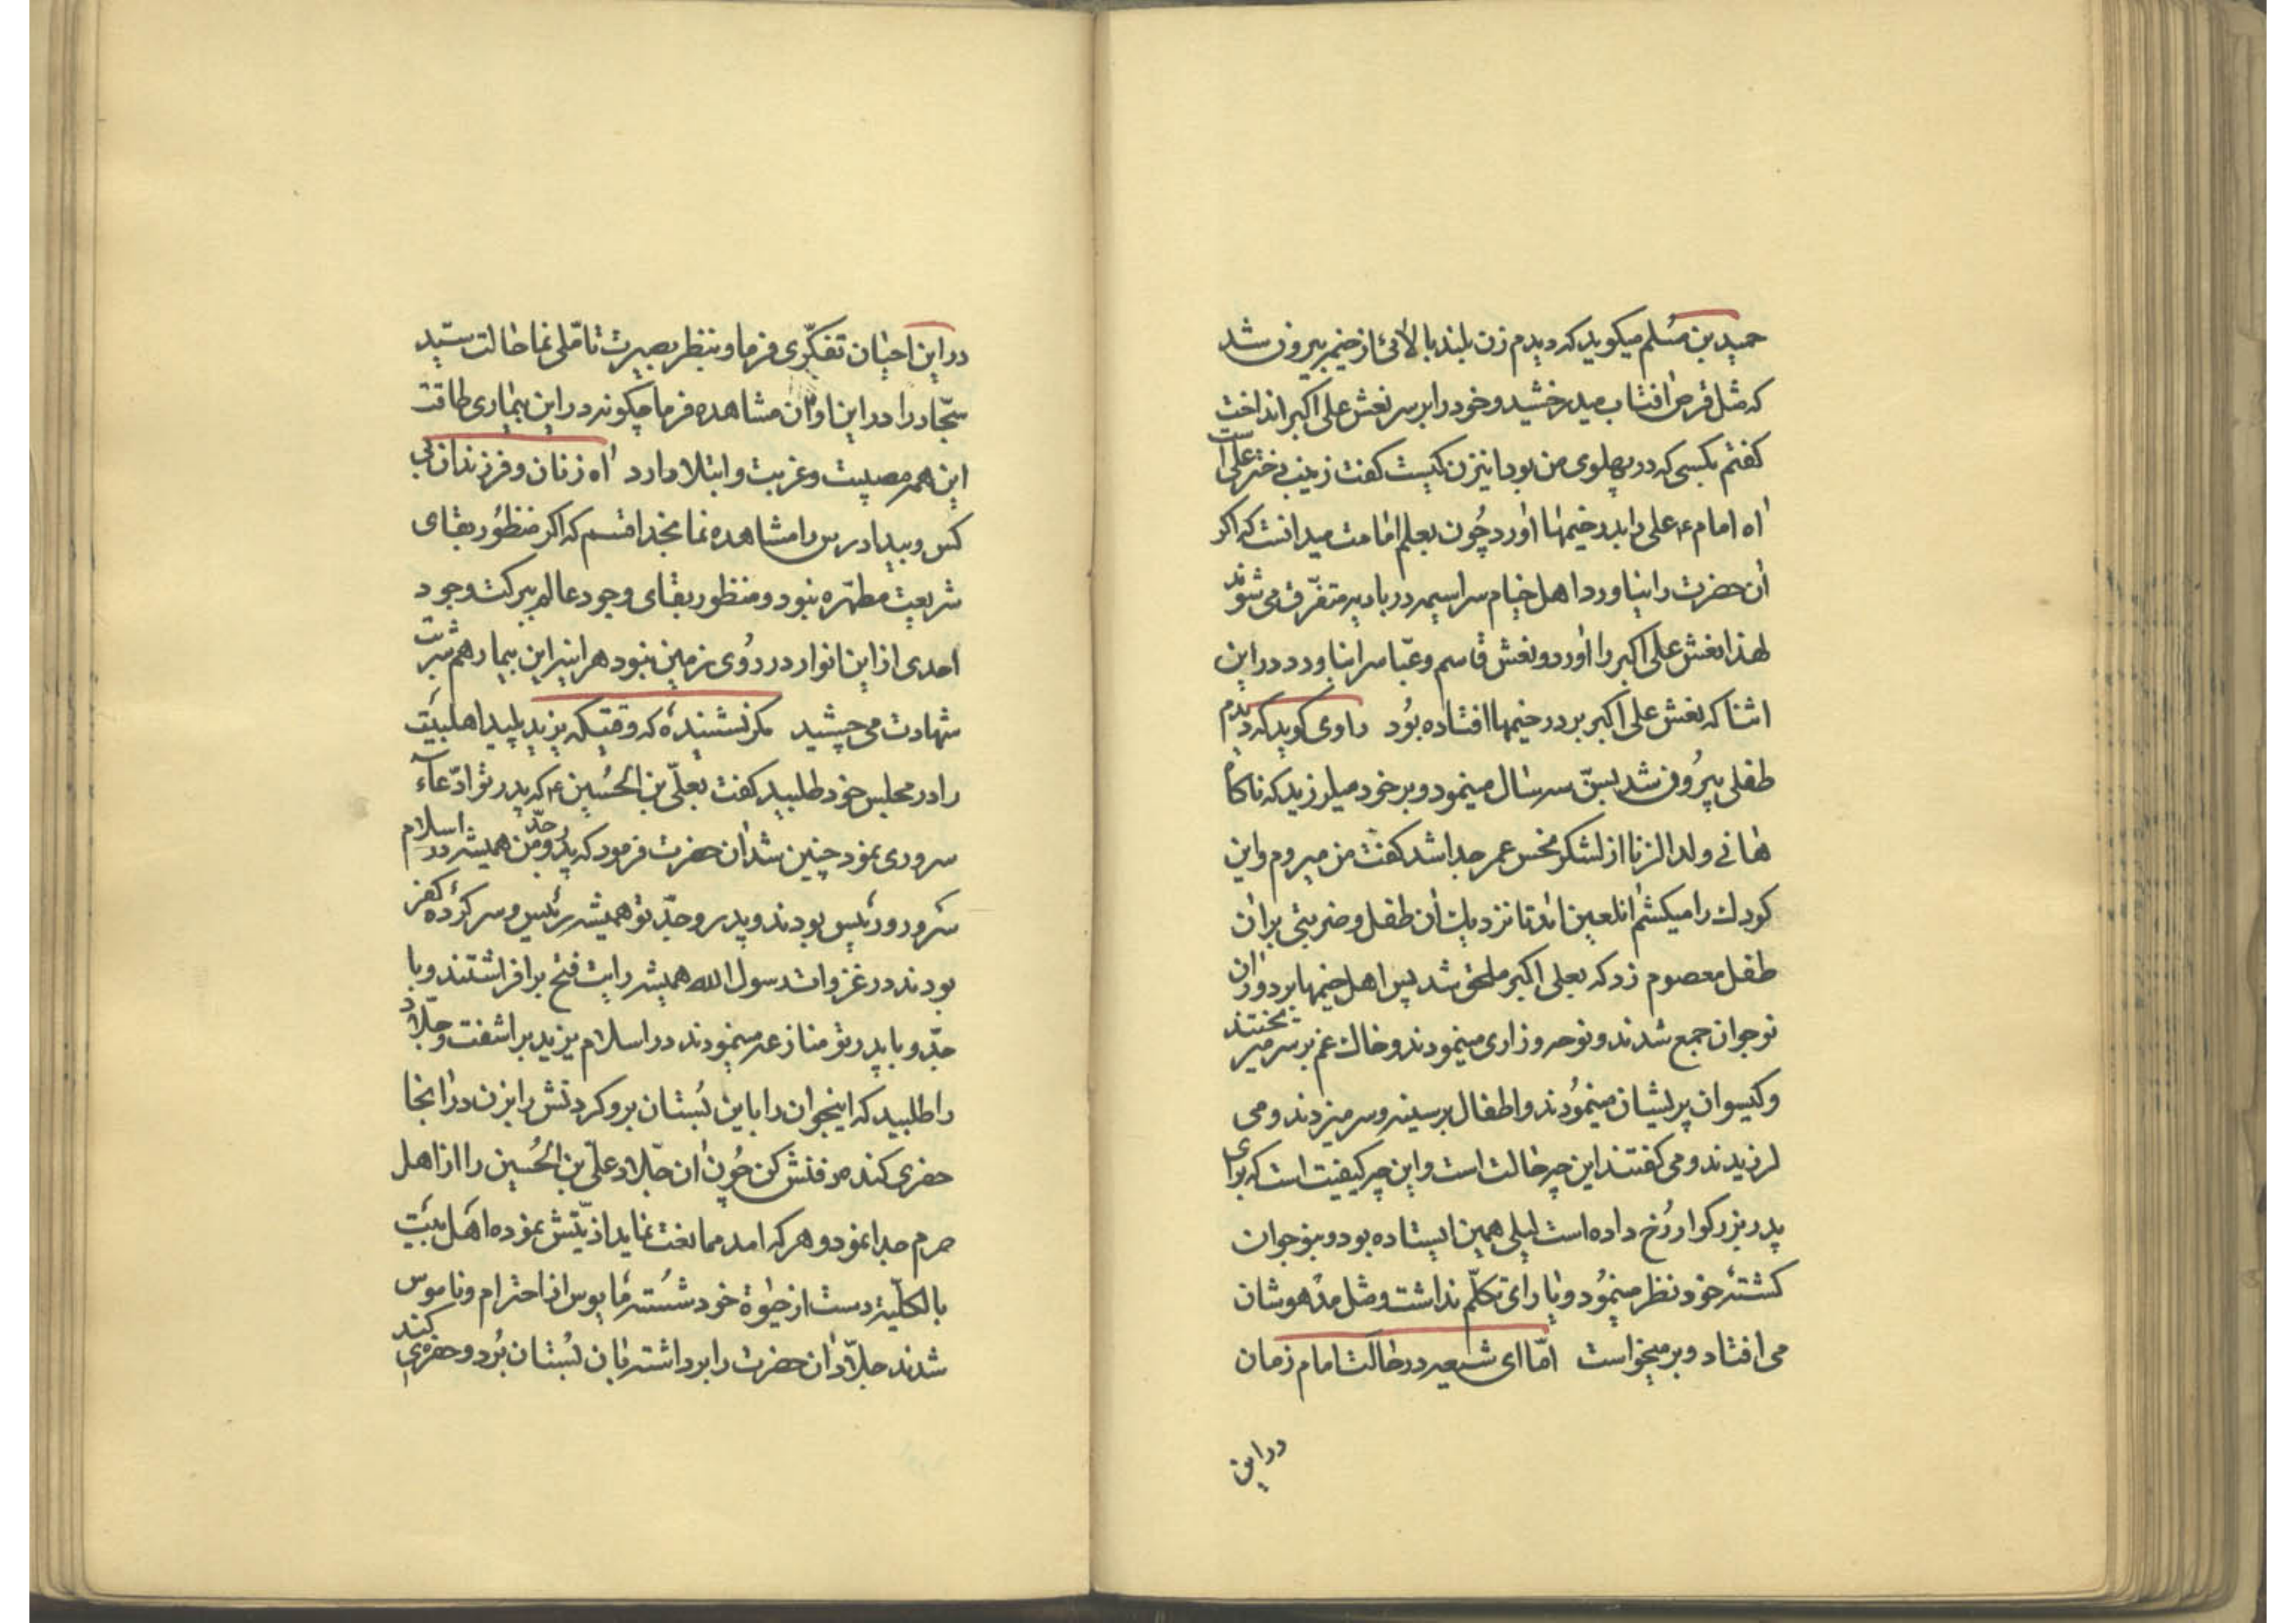 حمید بن مُسلم میکوید که دیدم زن بلند بالائی از خیمه بیرون شد
که مثل قرص افتاب میدرخشید و خود را بر سر نعش علی اکبر انداخت
کفتم بکسی که در پهلوی من بود اینزن کیست کفت زینب دختر علی است
اه امام ع علی را بدر خیمها اورد چُون بعلم امامت میدانست که اکر
ان حضرت را نیاورد اهل خیام سراسیمه در بادیه متفرّق می شوند
لهذا نعش علی اکبر را اورد و نعش قاسم و عبّاس را نیاورد در این
اثنا که نعش علی اکبر بر در خیمها افتاده بُود راوی کوید که دیدم
طفلی بیرُون شد بسنّ سه سال مینمود و بر خود میلرزید که ناکاه
هانی ولد الزنا از لشکر نحس عمر جدا شد کفت من میروم و این
کودک را میکشم انلعین امد تا نزدیک ان طفل و ضربتی بران
طفل معصوم زد که بعلی اکبر ملحق شد پس اهل خیمها بر دور ان
نوجوان جمع شدند و نوحه و زاری مینمودند و خاک غم بر سر میریختند
و کیسوان پریشان مینمُودند و اطفال بر سینه و سر میزدند و می
لرزیدند و می کفتند این چه حالت است و این چه کیفیت است که برای
پدر بزرکوار رُخ داده است لیلی همین ایستاده بود و بنوجوان
کشتهٔ خود نظر مینمُود و یارای تکلّم نداشت و مثل مدهوشان
می افتاد و بر میخواست امّا ای شیعه در حالت امام زمان
در این
در این احیان تفکّری فرما و بنظر بصیرت تامّلی نما حالت سیّد
سجّاد را در این اوان مشاهده فرما چکونه در این بیماری طاقت
این همه مصیبت و غربت و ابتلا دارد اه زنان و فرزندان بی
کس و بیدادرس را مشاهده نما بخدا قسم که اکر منظُور بقای
شریعت مطهّره نبود و منظور بقای وجود عالم ببرکت وجود
احدی از این انوار در رُوی زمین نبود هراینه این بیمار هم شربت
شهادت می چشید مکر نشنیدهٔ که وقتیکه یزید پلید اهلبیت
را در مجلس خود طلبید کفت بعلّی بن الحُسین ع که پدر تو ادّعاء
سروری نمود چنین شد ان حضرت فرمود که پدر و جدّ من همیشه در اسلام
سَرور و رئیس بودند و پدر و جدّ تو همیشه رئیس و سرکردهٔ کفر
بودند در غزوات رسول الله همیشه رایت فتح برافراشتند و با
جدّ و با پدر تو منازعه مینمودند در اسلام یزید براشفت و جلّاد
را طلبید که اینجوان را باین بُستان برو کردنش را بزن در انجا
حفری کند مدفنش کن چُون ان جلّاد علّی بن الحُسین را از اهل
حرم جدا نمود و هر که امد ممانعت نماید اذیّتش نموده اهل بیت
بالکلیّه دست از حیٰوة خود شُسته مایوس از احترام و ناموس
شدند جلاّد ان حضرت را برداشته بان بُستان بُرد و حفرهٔ کند